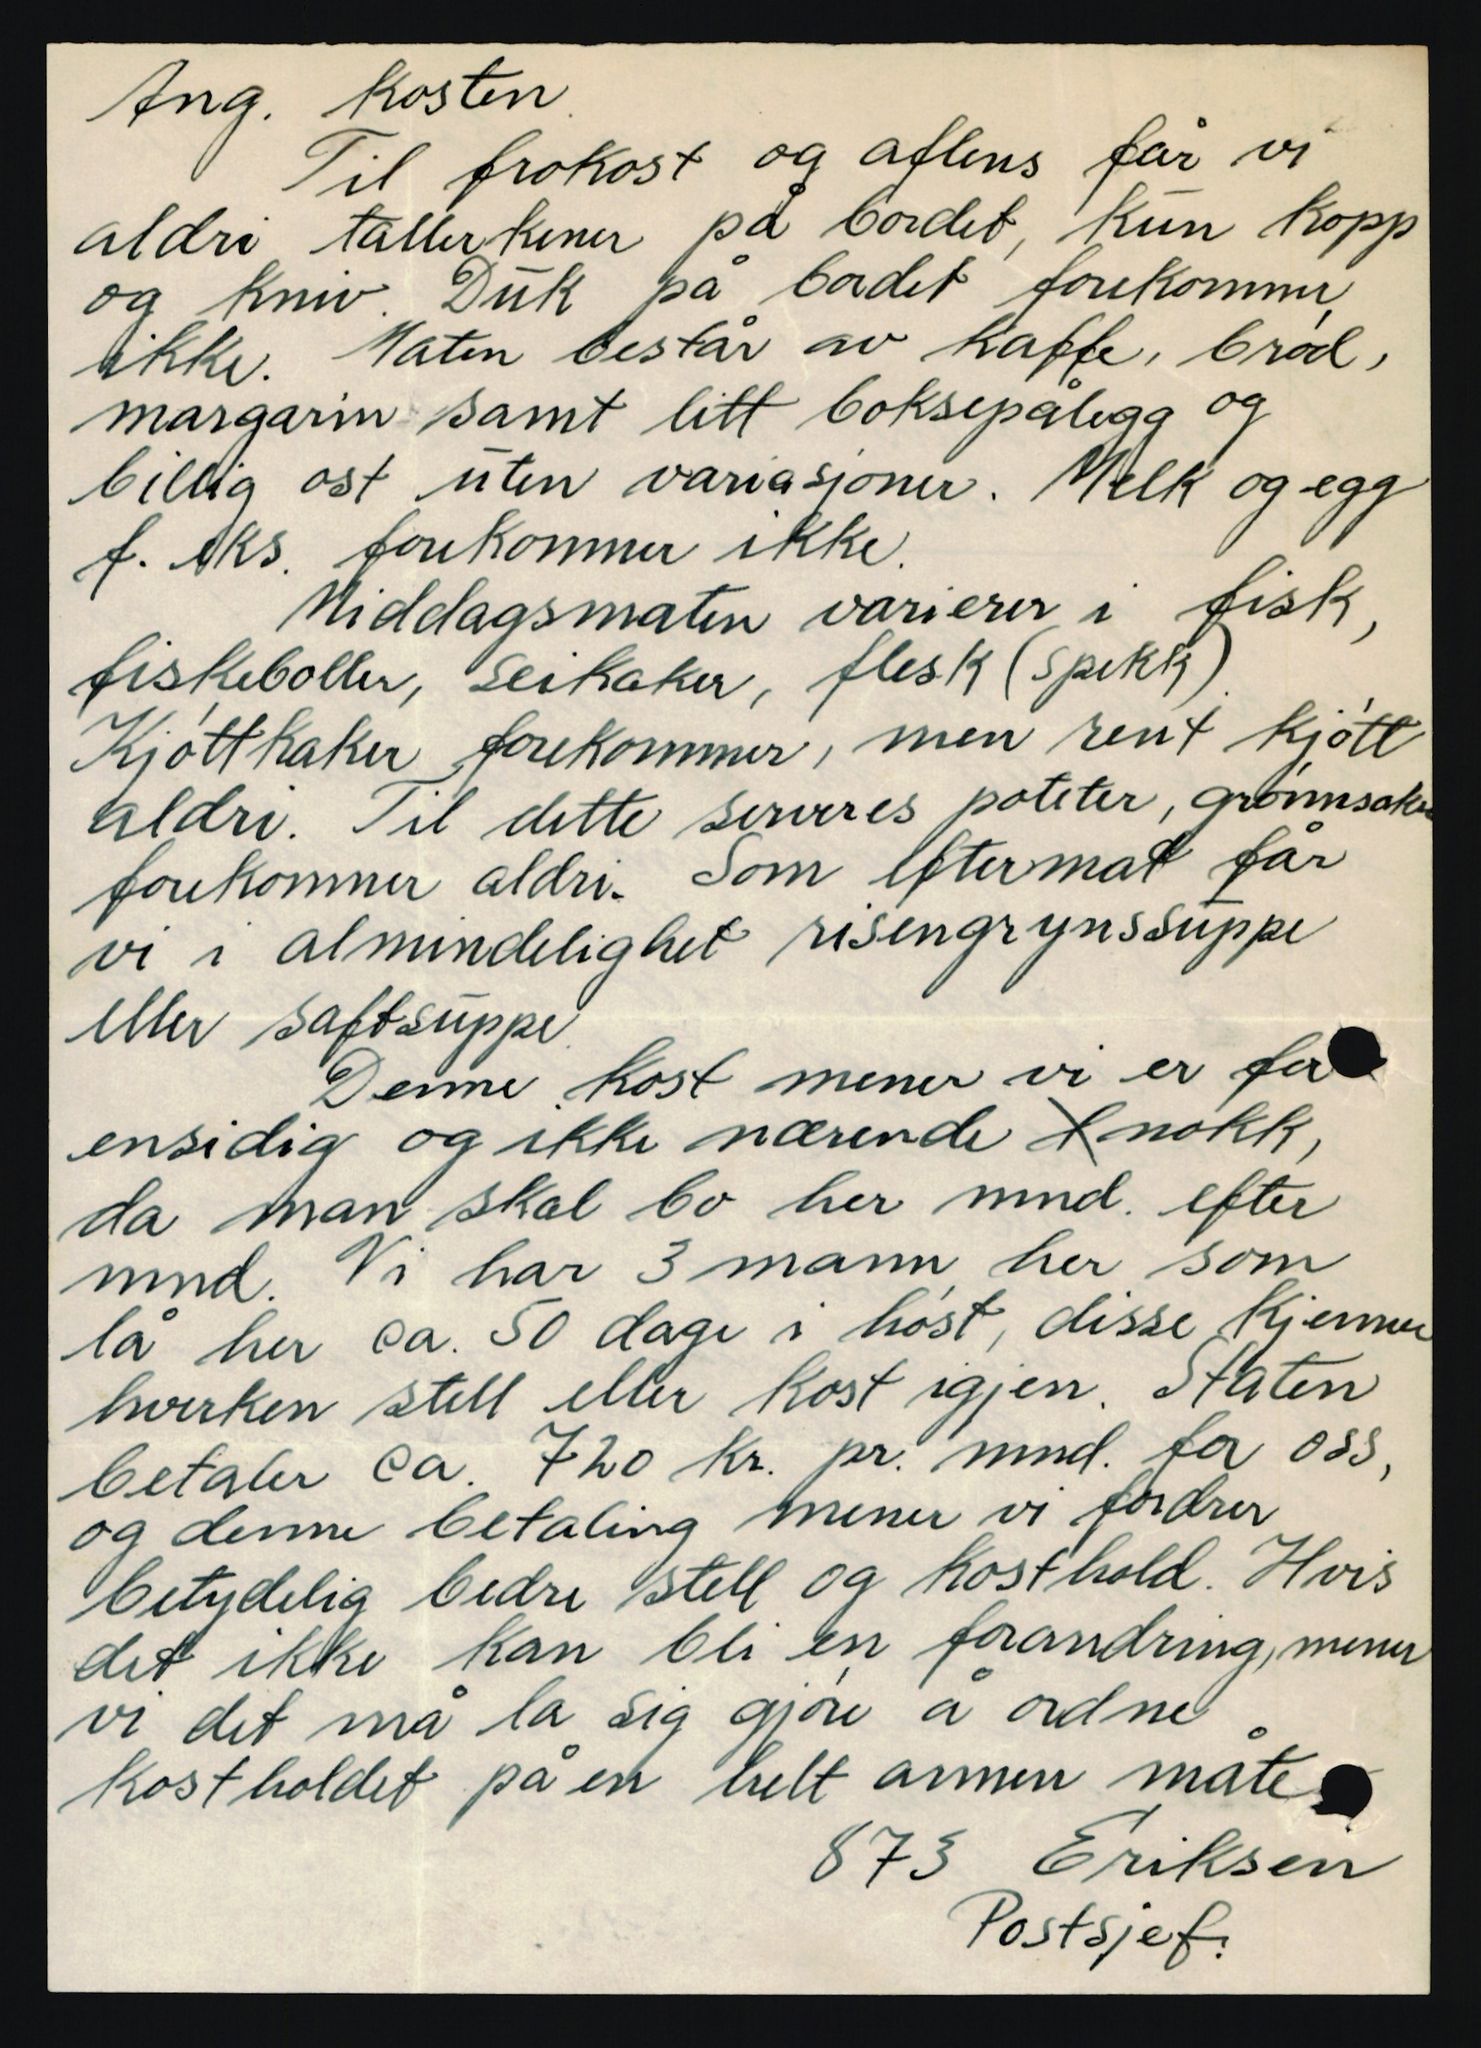 Ang. kosten.
Til frokost og aftens får vi
aldri tallerkener på bordet, kun kopp
og kniv. Duk på bordet forekommer
ikke. Maten består av kaffe, brød,
margarin samt litt boksepålegg og
billig ost uten variasjoner. Melk og egg
f. eks. forekommer ikke.
Middagsmaten varierer i fisk,
fiskeboller, seikaker, flesk (spekk).
Kjøttkaker forekommer, men rent kjøtt
aldri. Til dette serveres poteter, grønnsaker
forekommer aldri. Som eftermat får
vi i almindelighet risengrynssuppe
eller saftsuppe.
Denne kost mener vi er for
ensidig og ikke nærende nokk,
da man skal bo her mnd. efter
mnd. Vi har 3 mann her som
lå her ca. 50 dage i høst, disse kjenner
hverken stell eller kost igjen. Staten
betaler ca. 720 kr. pr. mnd. for oss,
og denne betaling mener vi fordrer
betydelig bedre stell og kosthold. Hvis
det ikke kan bli en forandring, mener
vi det må la sig gjøre å ordne
kostholdet på en helt annen måte.
873 Eriksen
Postsjef.